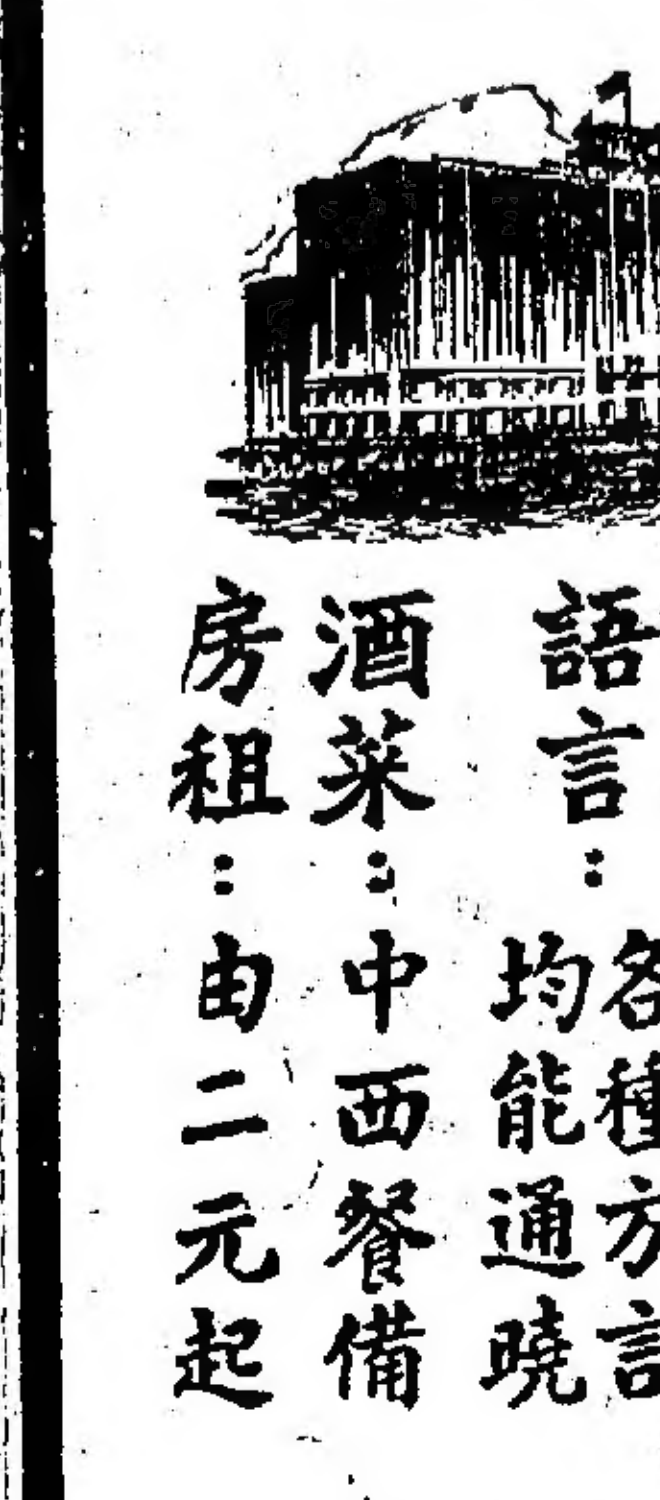 語言：各種方言
均能通曉
酒菜：中西餐備
房租：由二元起